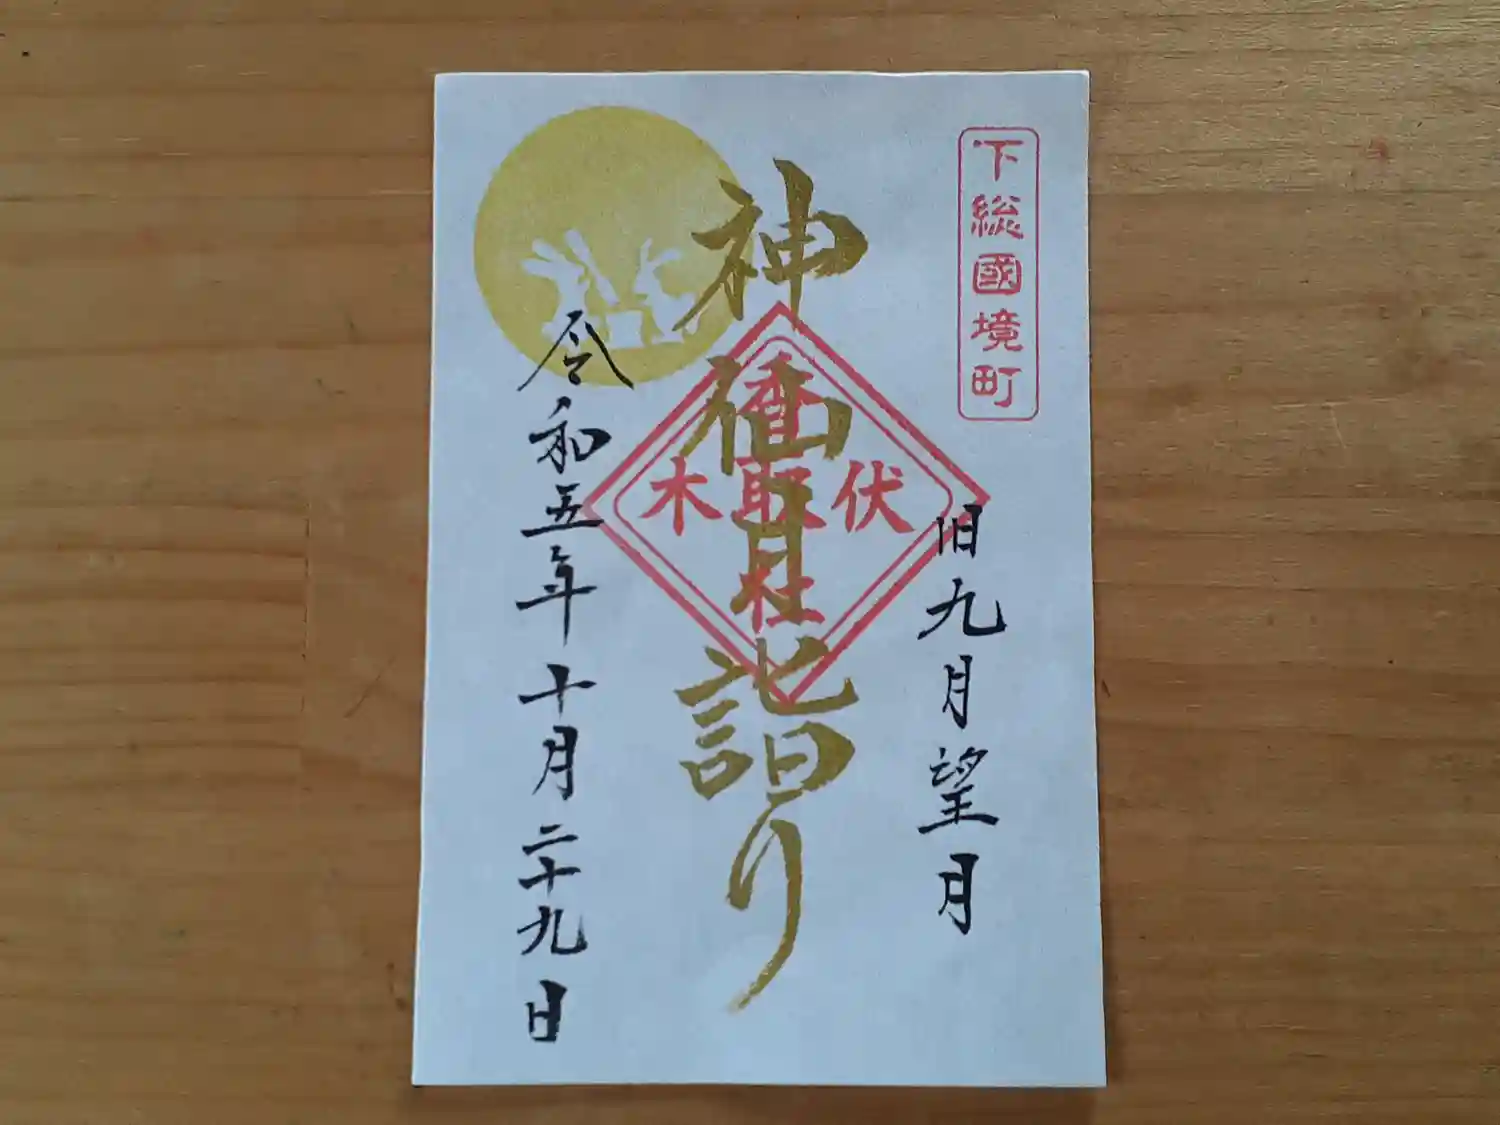 下総國境町
旧九月望月
神無月詣り
伏木
香取社
令和五年十月二十九日